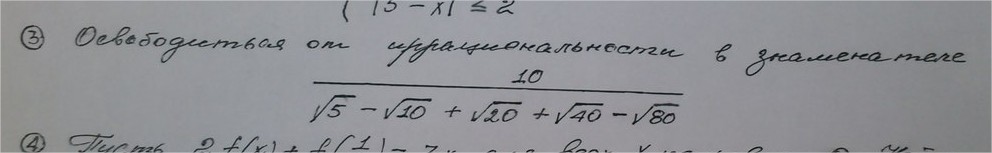 ( |5 - x| ≤ 2
③ Освободиться от иррациональности в знаменателе
10
√5 - √10 + √20 + √40 - √80
④ Пусть 2f(x) + f(1) =